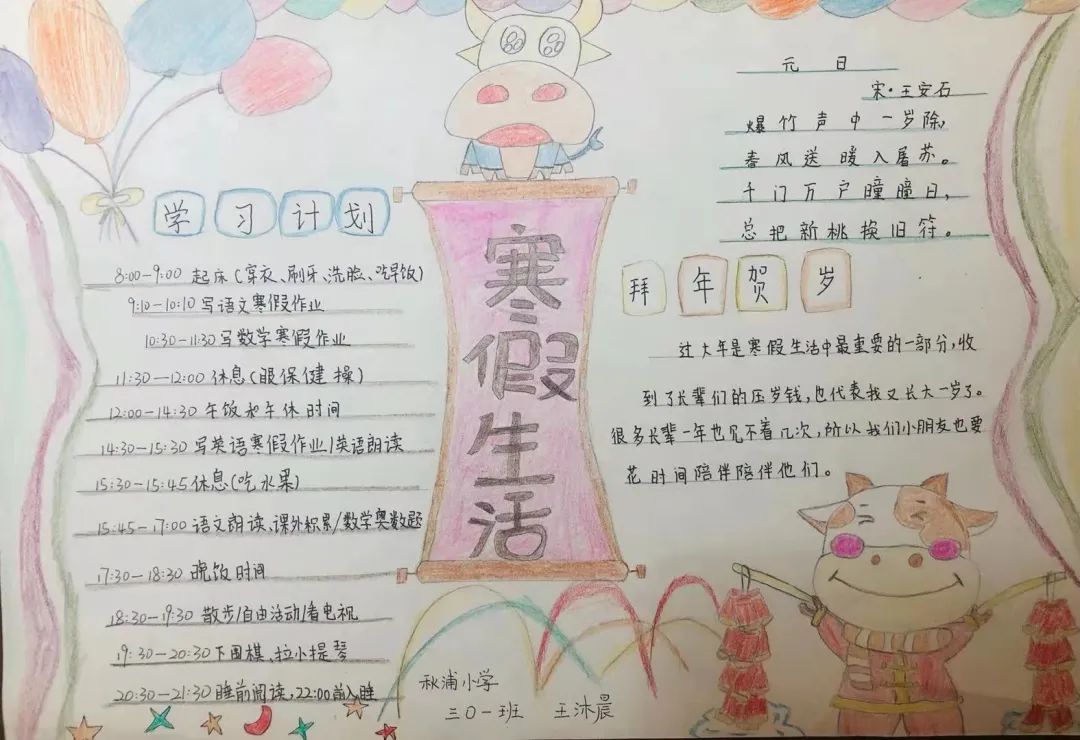 学习计划
8:00-9:00 起床(穿衣、刷牙、洗脸、吃早饭)
9:10-10:10 写语文寒假作业
10:30-11:30 写数学寒假作业
11:30-12:00 休息(眼保健操)
12:00-14:30 午饭和午休时间
14:30-15:30 写英语寒假作业/英语朗读
15:30-15:45 休息(吃水果)
15:45-17:00 语文朗读、课外积累/数学奥数题
17:30-18:30 晚饭时间
18:30-19:30 散步/自由活动/看电视
19:30-20:30 下围棋、拉小提琴
20:30-21:30 睡前阅读,22:00前入睡
寒假生活
元日
宋·王安石
爆竹声中一岁除,
春风送暖入屠苏。
千门万户曈曈日,
总把新桃换旧符。
拜年贺岁
过大年是寒假生活中最重要的一部分,收
到了长辈们的压岁钱,也代表我又长大一岁了。
很多长辈一年也见不着几次,所以我们小朋友也要
花时间陪伴陪伴他们。
秋浦小学
三0一班 王沐晨